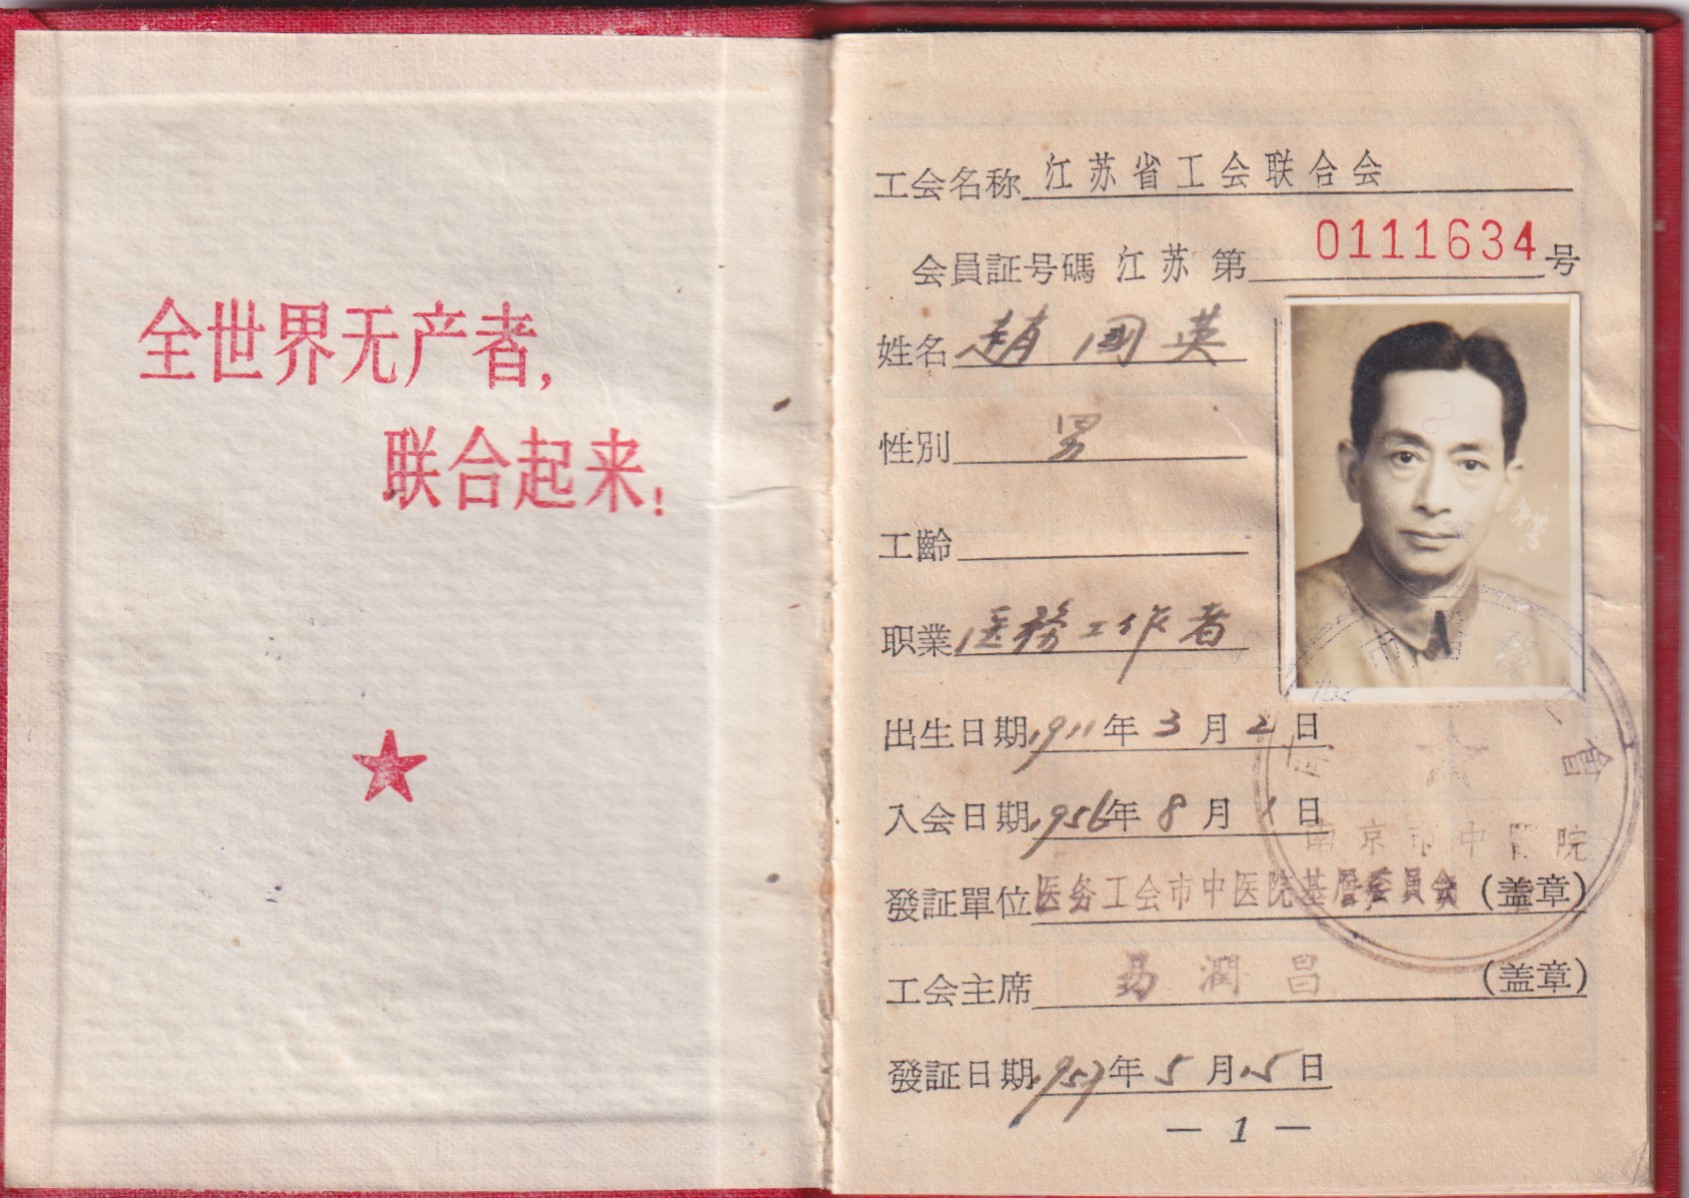 全世界无产者,
联合起来!
工会名称 江苏省工会联合会
会員証号碼 江苏 第 0111634 号
姓名 趙国英
性别 男
工齡
职業 医務工作者
出生日期 1911年 3 月 2 日
入会日期 1956年 8 月 1 日
南京市中醫院
發証單位 医务工会市中医院基层委員会 (盖章)
工会主席 易潤昌 (盖章)
發証日期 1957年 5 月 15 日
— 1 —